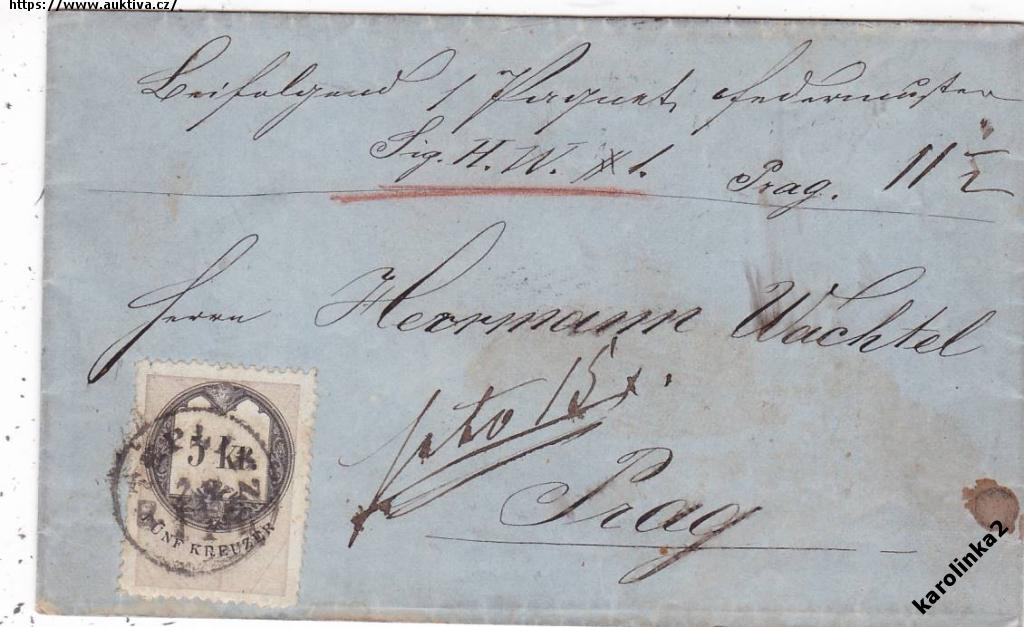 https://www.auktiva.cz/
Beifolgend 1 Paquet Federmuster
Sig. H. W. # 1. Prag. 11 1/2
Herrn Herrmann Wachtel
15 x.
Prag
5 Kr.
FÜNF KREUZER
karolinka2